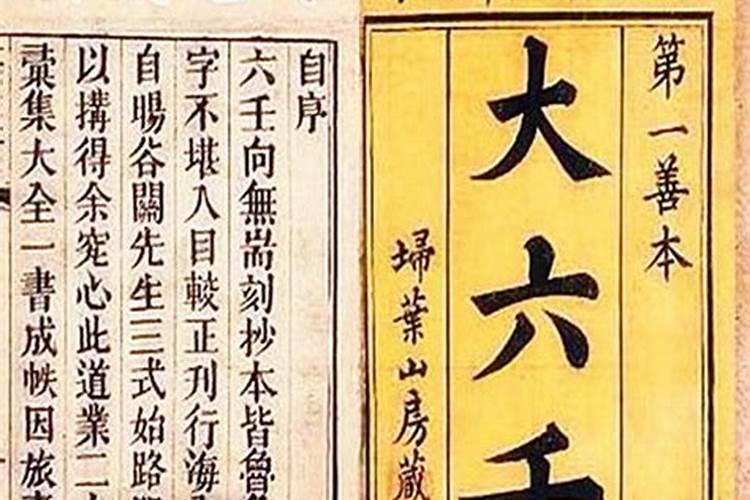 第一善本
大六壬
埽葉山房藏
自序
六壬向無耑刻抄本皆魯
字不堪入目較正刊行海
自暘谷關先生三式始路
以搆得余究心此道業二
彙集大全一書成帙因旅